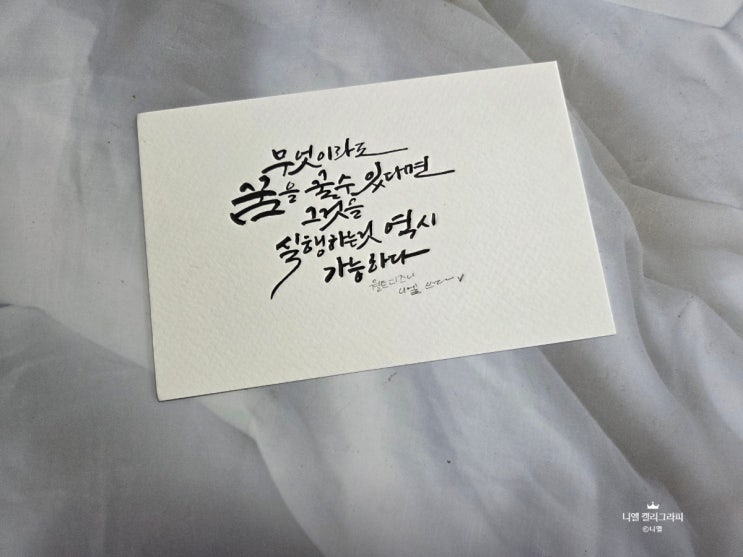 무엇이라도
꿈을 꿀수 있다면
그것을
실행하는것 역시
가능하다
월트디즈니
니엘 쓰다
니엘 캘리그라피
©니엘